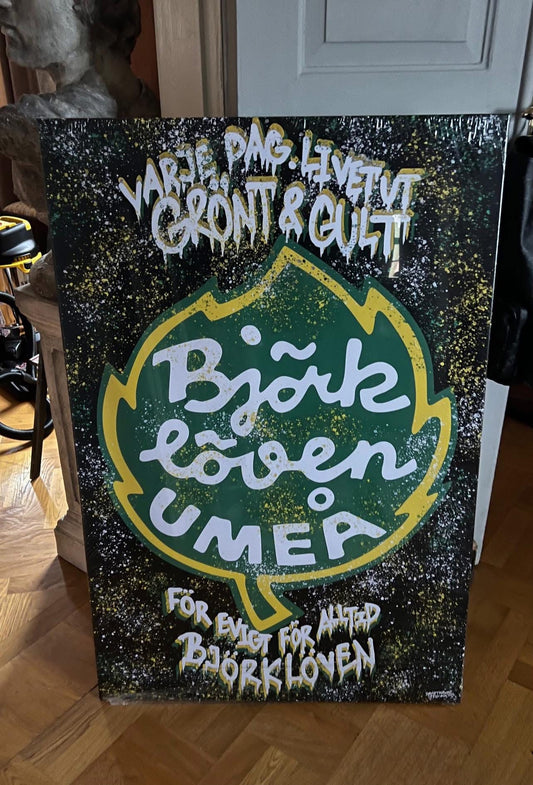 VARJE DAG. LIVET UT
GRÖNT & GULT
Björk
löven
UMEÅ
FÖR EVIGT FÖR ALLTID
BJÖRKLÖVEN